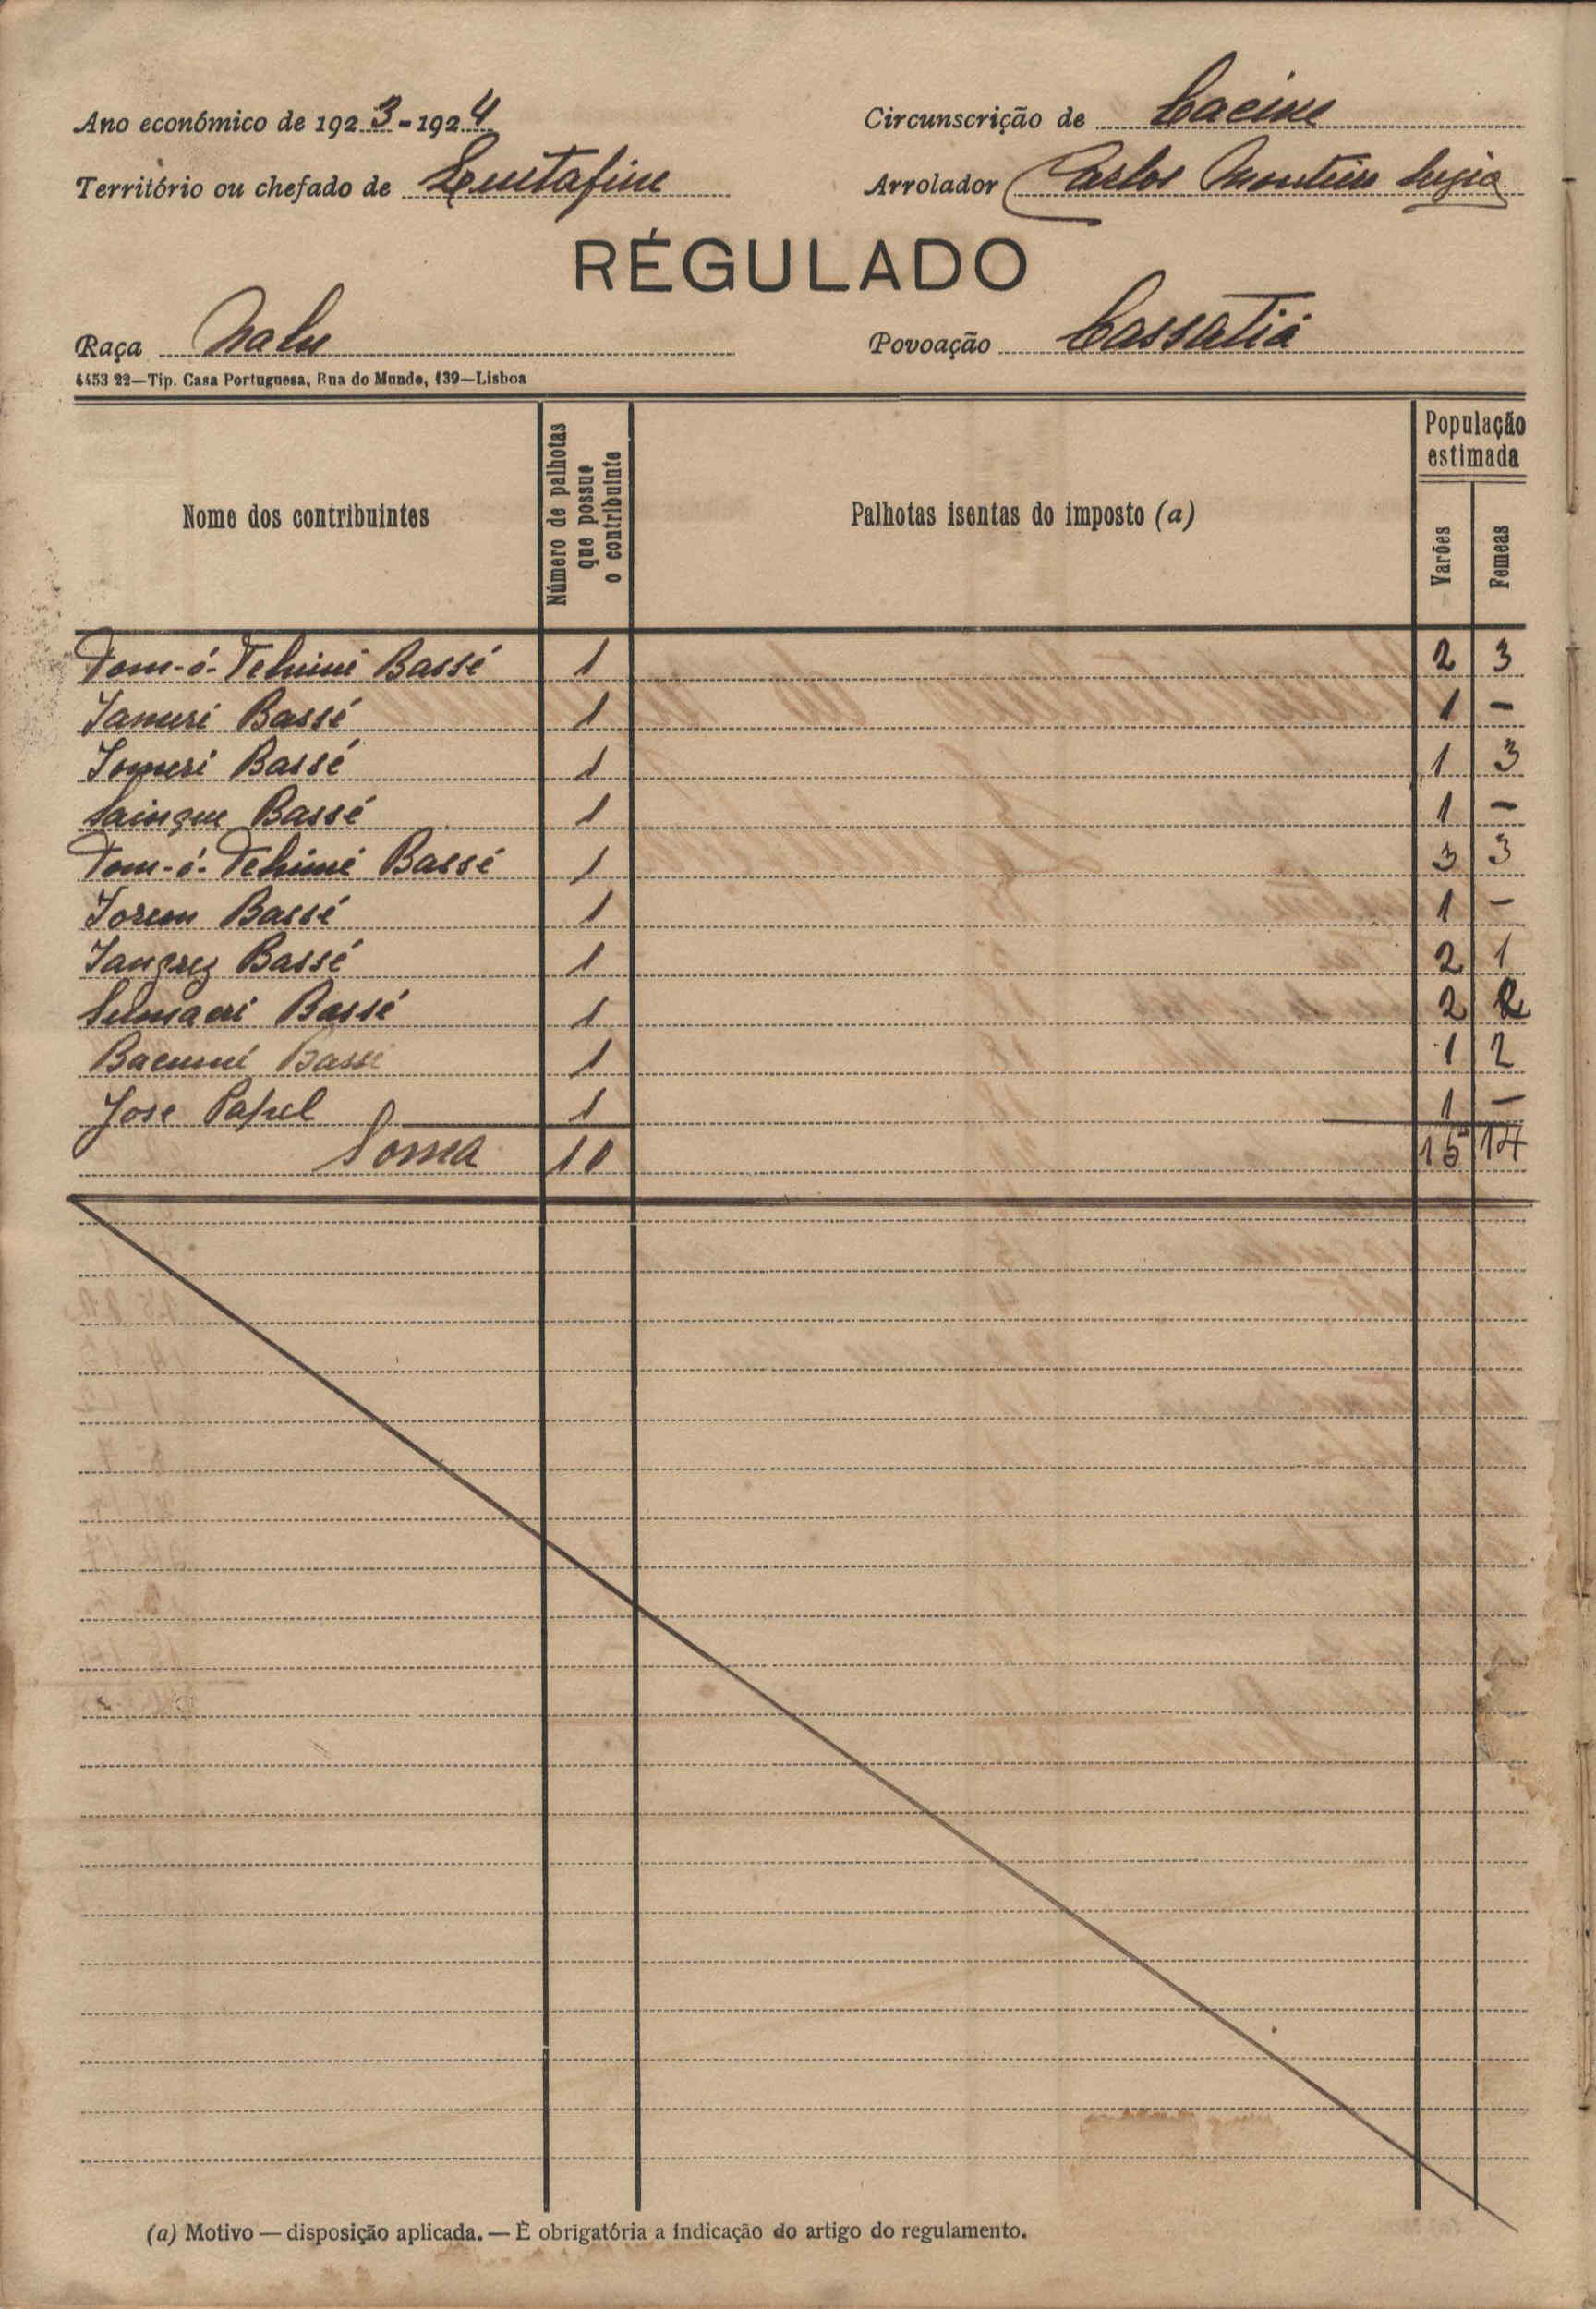 Ano económico de 1923-1924
Circunscrição de Cacine
Território ou chefado de Quitafine
Arrolador Carlos Monteiro
RÉGULADO
Raça Nalu
Povoação Cassatiá
4453 22—Tip. Casa Portuguesa, Rua do Mundo, 139—Lisboa
Nome dos contribuintes
Número de palhotas que possue o contribuinte
Palhotas isentas do imposto (a)
População estimada
Varões
Femeas
Tom-ó-Tchimi Bassé 1 2 3
Jamuri Bassé 1 1 -
Jomeri Bassé 1 1 3
Sainque Bassé 1 1 -
Tom-ó-Tchimi Bassé 1 3 3
Jorem Bassé 1 1 -
Tangrez Bassé 1 2 1
Bassé 1 2 2
Bacumé Bassé 1 1 2
Jose Papel 1 1 —
Soma 10 15 14
(a) Motivo — disposição aplicada. — É obrigatória a indicação do artigo do regulamento.